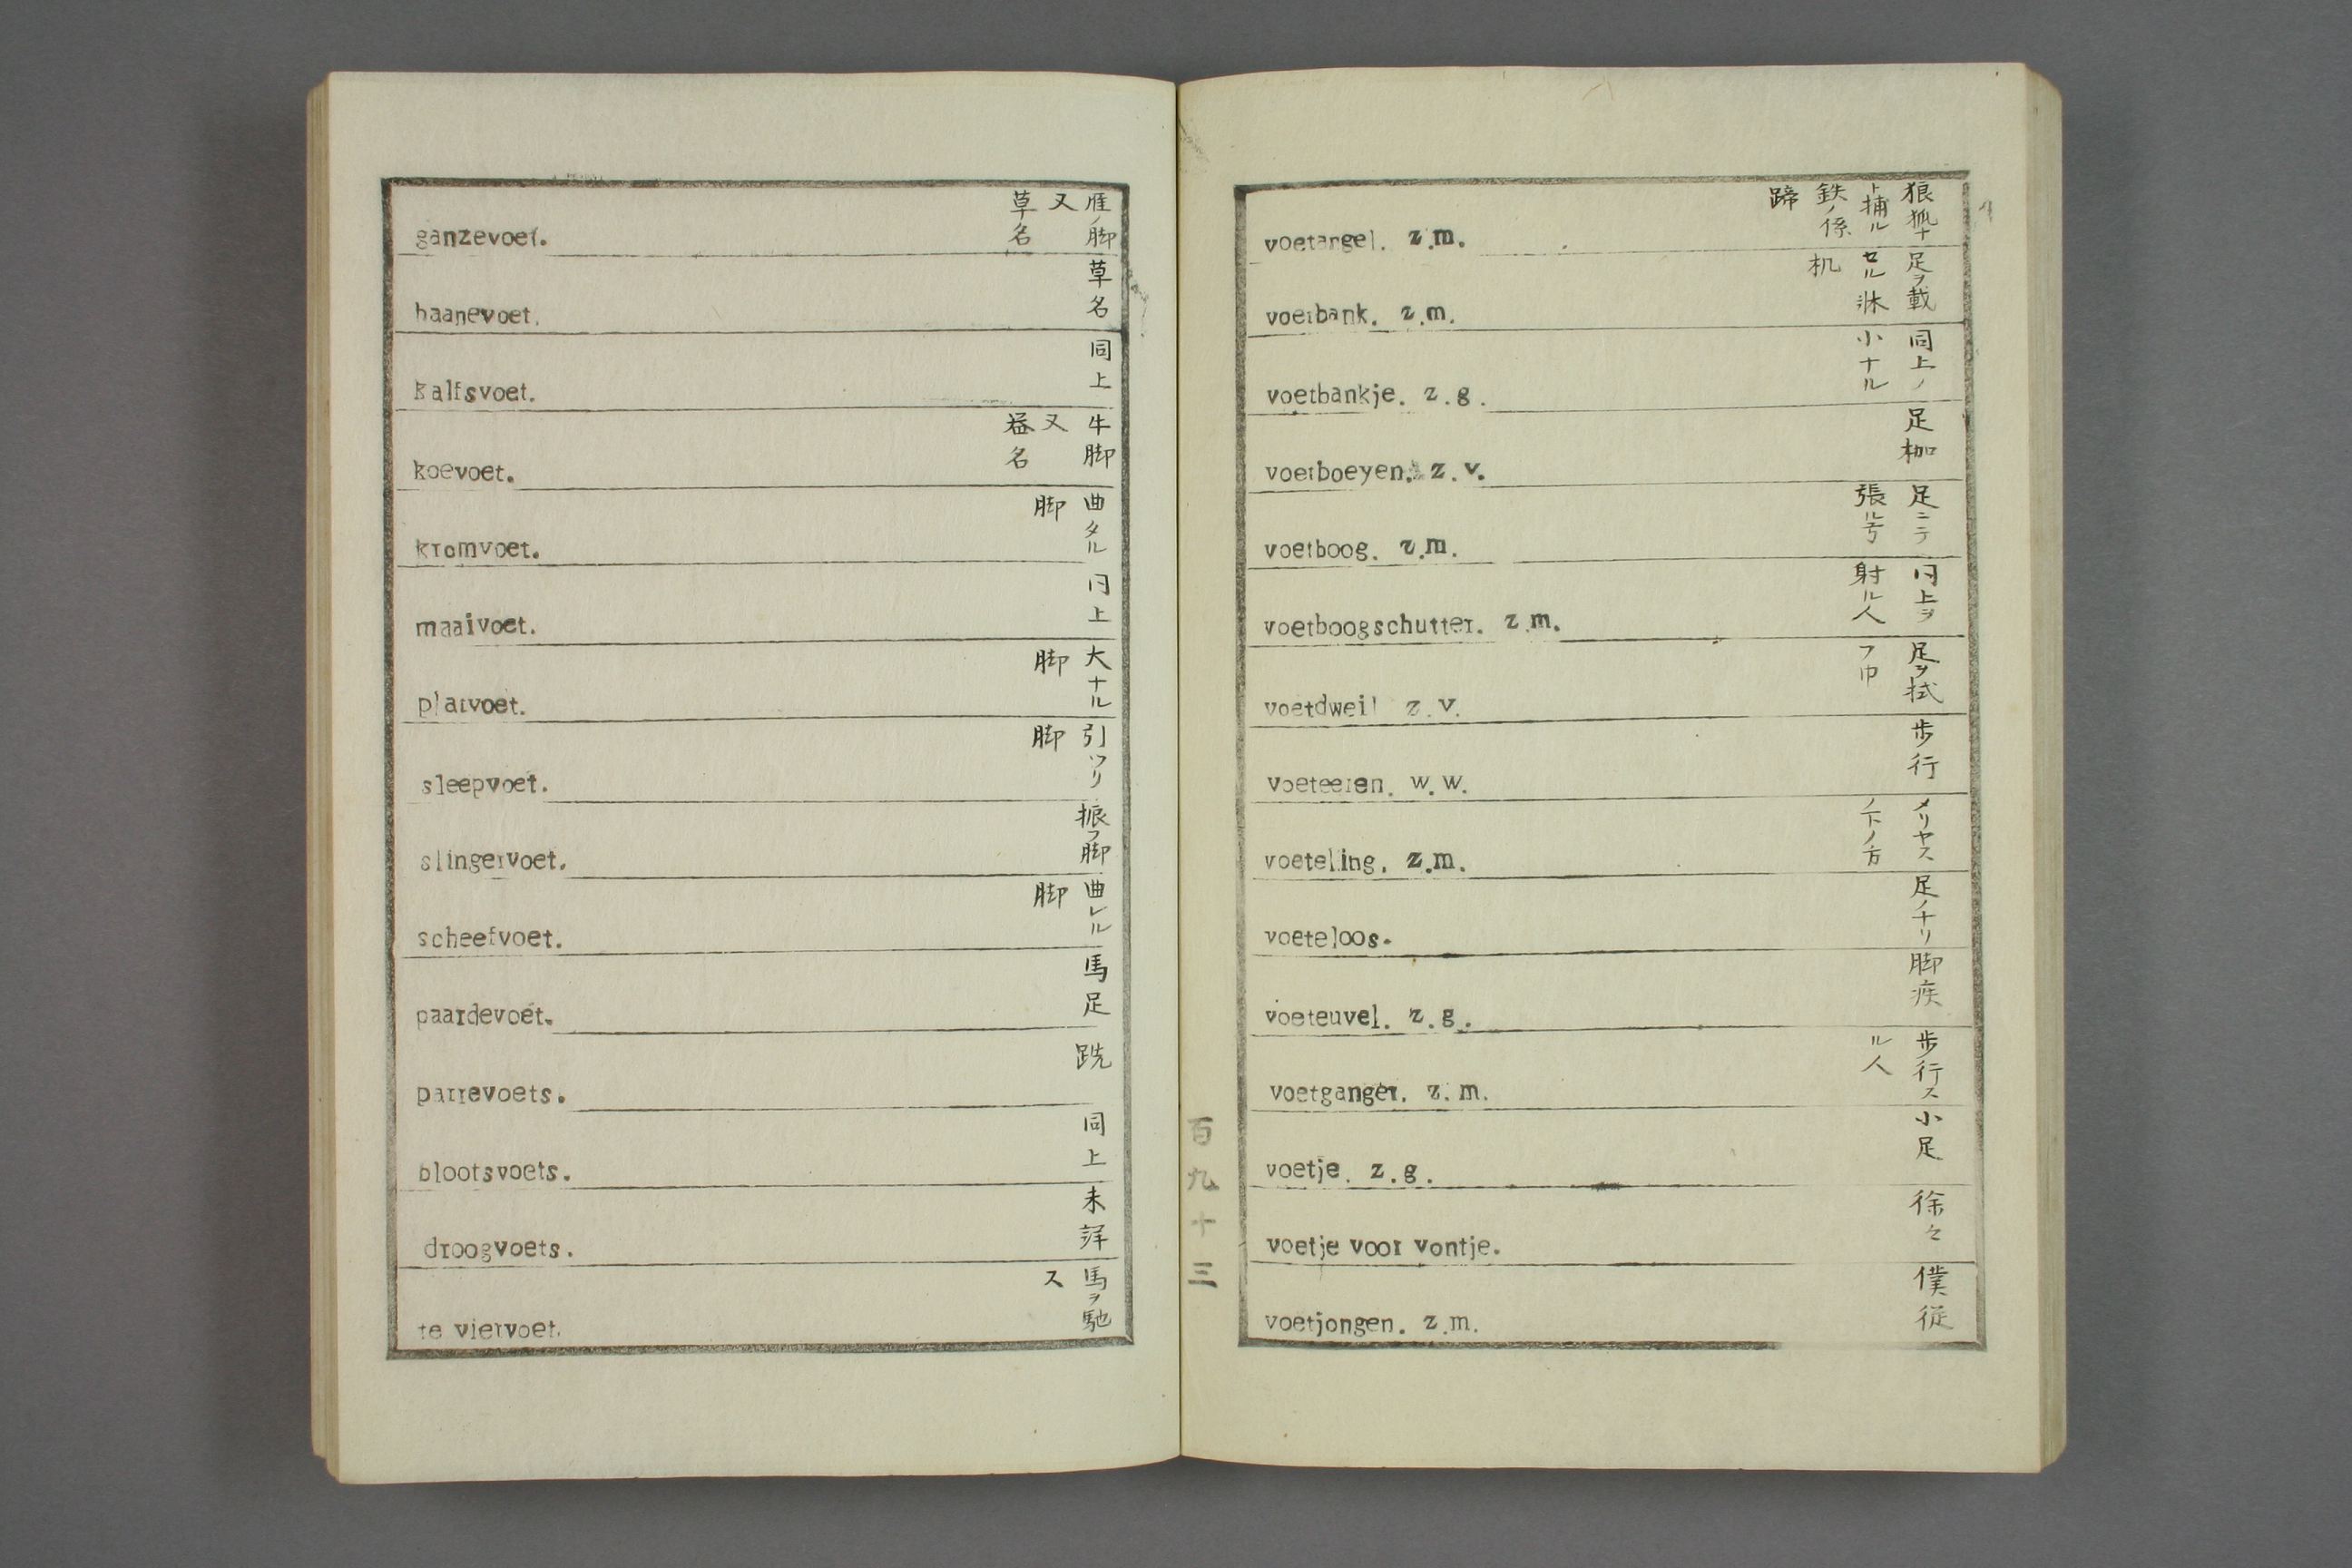 ganzevoet.
雁ノ脚
又
草名
haanevoet.
草名
kalfsvoet.
同上
koevoet.
牛脚
又
名
kromvoet.
曲タル
脚
maaivoet.
同上
platvoet.
大ナル
脚
sleepvoet.
引ツリ
脚
slingervoet.
振フ脚
scheefvoet.
曲レル
脚
paardevoet.
馬足
parrevoets.
跣
blootsvoets.
同上
droogvoets.
未詳
te viervoet.
馬ヲ馳
ス
百九十三
voetangel. z.m.
狼狐ナ
ト捕ル
鉄ノ係
蹄
voetbank. z.m.
足ヲ載
セル牀
机
voetbankje. z.g.
同上ノ
小ナル
voetboeyen. z.v.
足枷
voetboog. z.m.
足ニテ
張ル弓
voetboogschutter. z.m.
同上ヲ
射ル人
voetdweil z.v.
足ヲ拭
フ巾
voeteeren. w.w.
歩行
voeteling. z.m.
メリヤス
ノ下ノ方
voeteloos.
足ノナリ
voeteuvel. z.g.
脚疾
voetganger. z.m.
歩行ス
ル人
voetje. z.g.
小足
voetje voor vontje.
徐々
voetjongen. z.m.
僕従